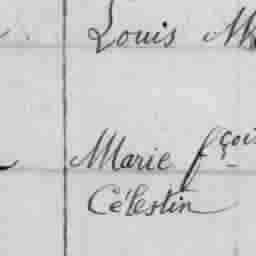 Louis M
Marie fçois
Célestin